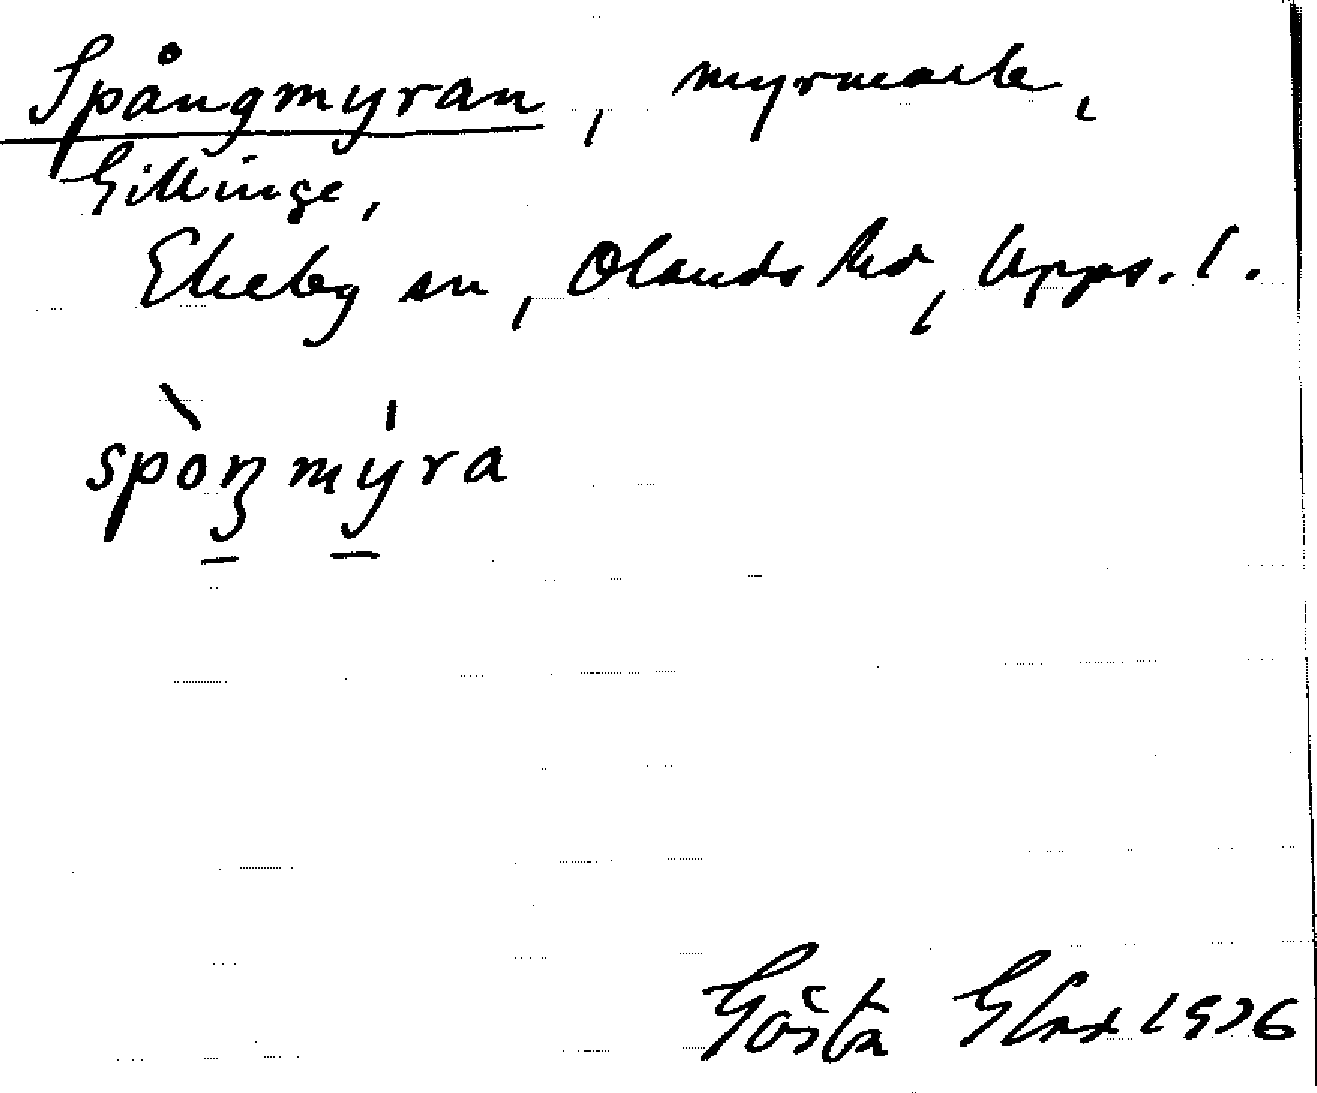 Spångmyran, myrmark,
Gillinge,
Ekeby sn, Olands hd, Upps. l.
spòŋmýra
Gösta